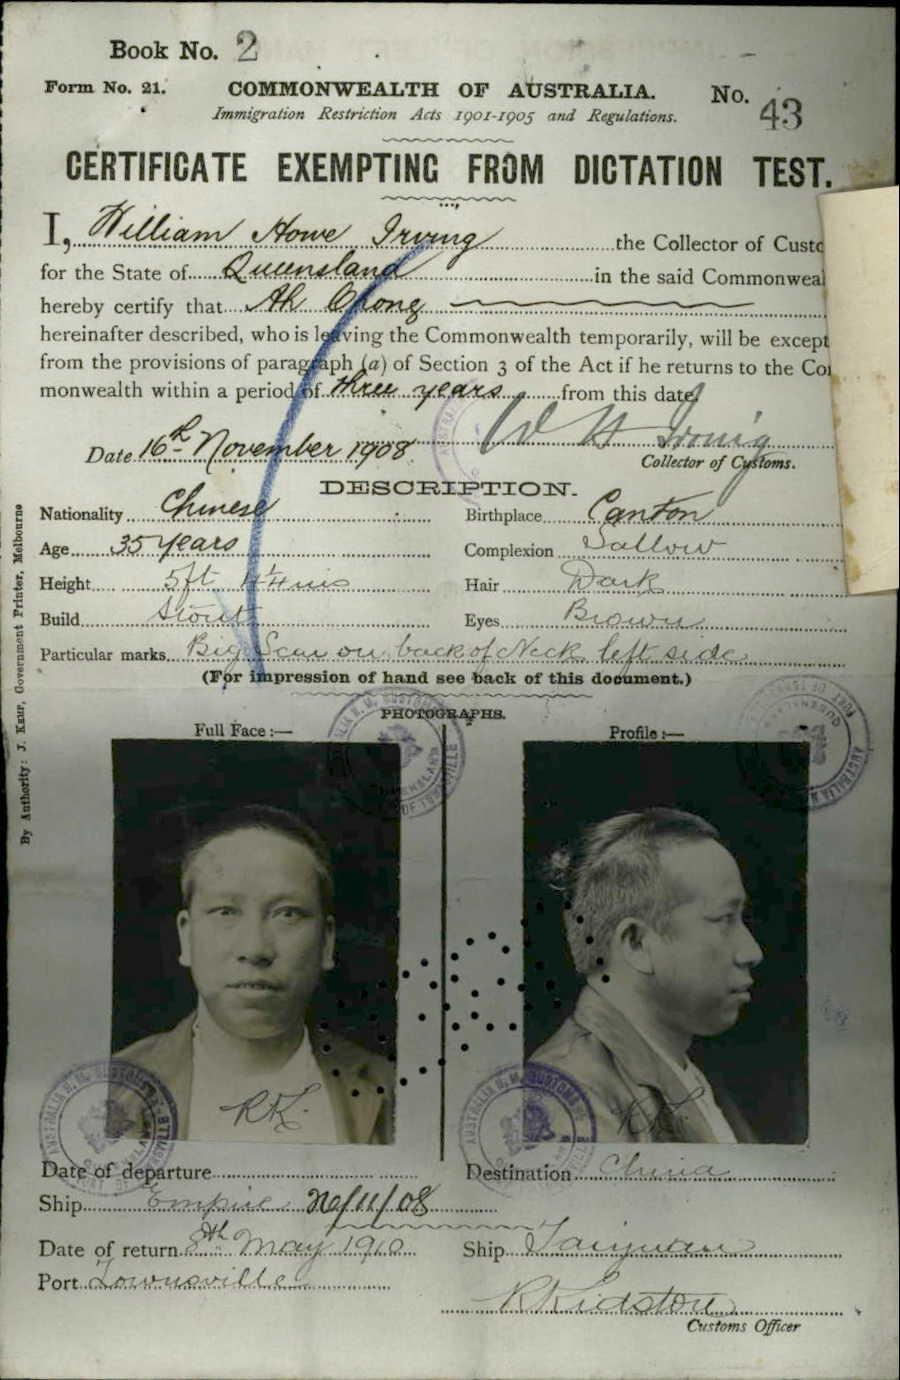 Book No. 2
Form No. 21. COMMONWEALTH OF AUSTRALIA. No. 43
Immigration Restriction Acts 1901-1905 and Regulations.
CERTIFICATE EXEMPTING FROM DICTATION TEST.
I, William Howe Irving the Collector of Custo
for the State of Queensland in the said Commonweal
hereby certify that Ah Chong
hereinafter described, who is leaving the Commonwealth temporarily, will be except
from the provisions of paragraph (a) of Section 3 of the Act if he returns to the Co
monwealth within a period of three years from this date.
Date 16th November 1908 W H Irving
Collector of Customs.
DESCRIPTION.
Nationality Chinese Birthplace Canton
Age 35 years Complexion Sallow
Height 5ft 4¼ins Hair Dark
Build Stout Eyes Brown
Particular marks Big Scar on back of Neck left side
(For impression of hand see back of this document.)
PHOTOGRAPHS.
Full Face:— Profile:—
RK RK
Date of departure Destination China
Ship Empire /11/08
Date of return 8th May 1910 Ship Taiyuan
Port Townsville
R Kidston
Customs Officer
By Authority: J. Kemp, Government Printer, Melbourne